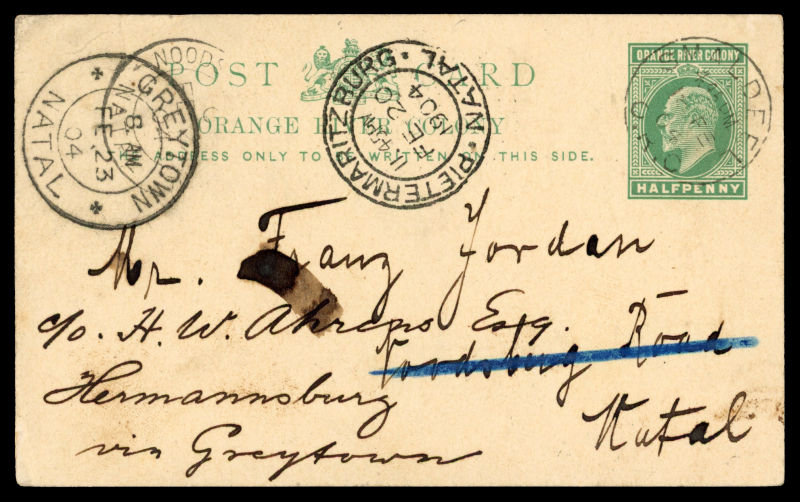 POST CARD
ORANGE RIVER COLONY
THE ADDRESS ONLY TO BE WRITTEN ON THIS SIDE.
ORANGE RIVER COLONY
HALFPENNY
GREYTOWN
8 AM
FE 23
04
NATAL
NOODS
NATAL
PIETERMARITZBURG · NATAL
11 45 AM
FE 20
1904
Mr. Franz Jordan
c/o. H. W. Ahrens Esq.
Noodsbug Road
Hermannsburg
Natal
via Greytown